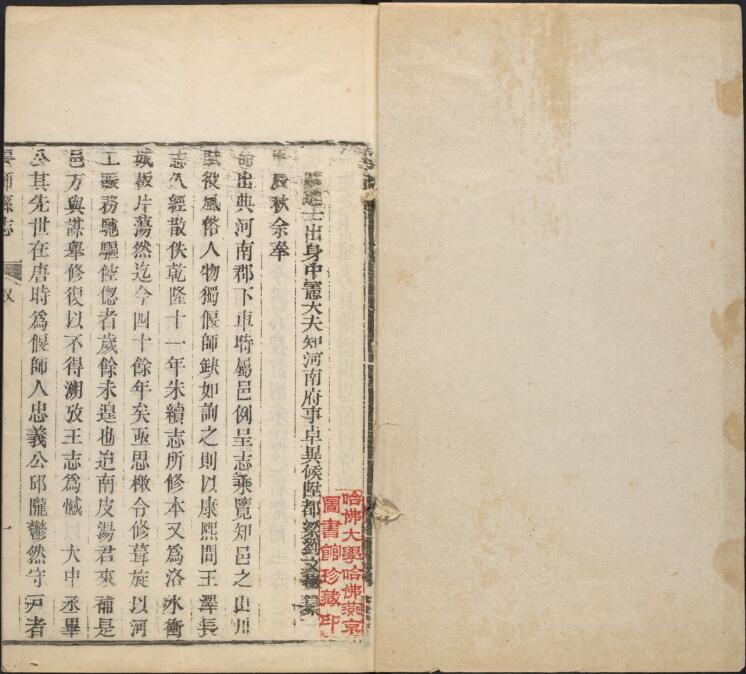 進士出身中憲大夫知河南府事卓異候陞都梁劉文徽纂
甲辰秋余奉
命出典河南郡下車時屬邑例呈志乘覽知邑之山川
賦役風俗人物獨偃師缺如詢之則以康熙間王澤長
志久經散佚乾隆十一年朱續志所修本又為洛水衝
城板片蕩然迄今四十餘年矣亟思檄令修葺旋以河
工賑務馳驅倥偬者歲餘未遑也迨南皮湯君來補是
邑方與謀舉修復以不得溯攷王志為憾 大中丞畢
公其先世在唐時為偃師人忠義公邱隴鬱然守戶者
偃師縣志
敘
一
哈佛大學哈佛燕京
圖書館珍藏印